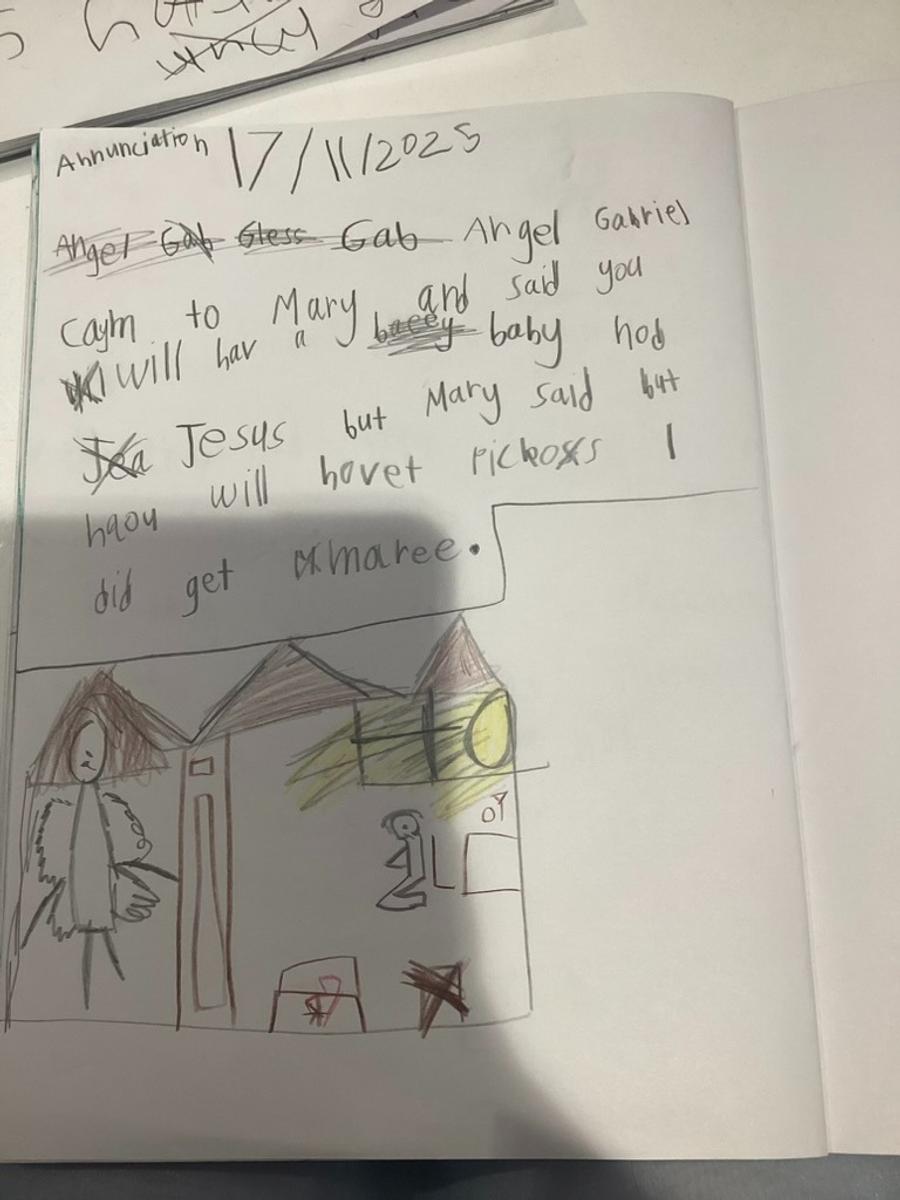 Annunciation 17/11/2025
Angel Gab Gless Gab Angel Gabriel
Caym to Mary and said you
will hav a baccy baby nod
Jea Jesus but Mary said but
haou will hovet pickoss I
did get maree.